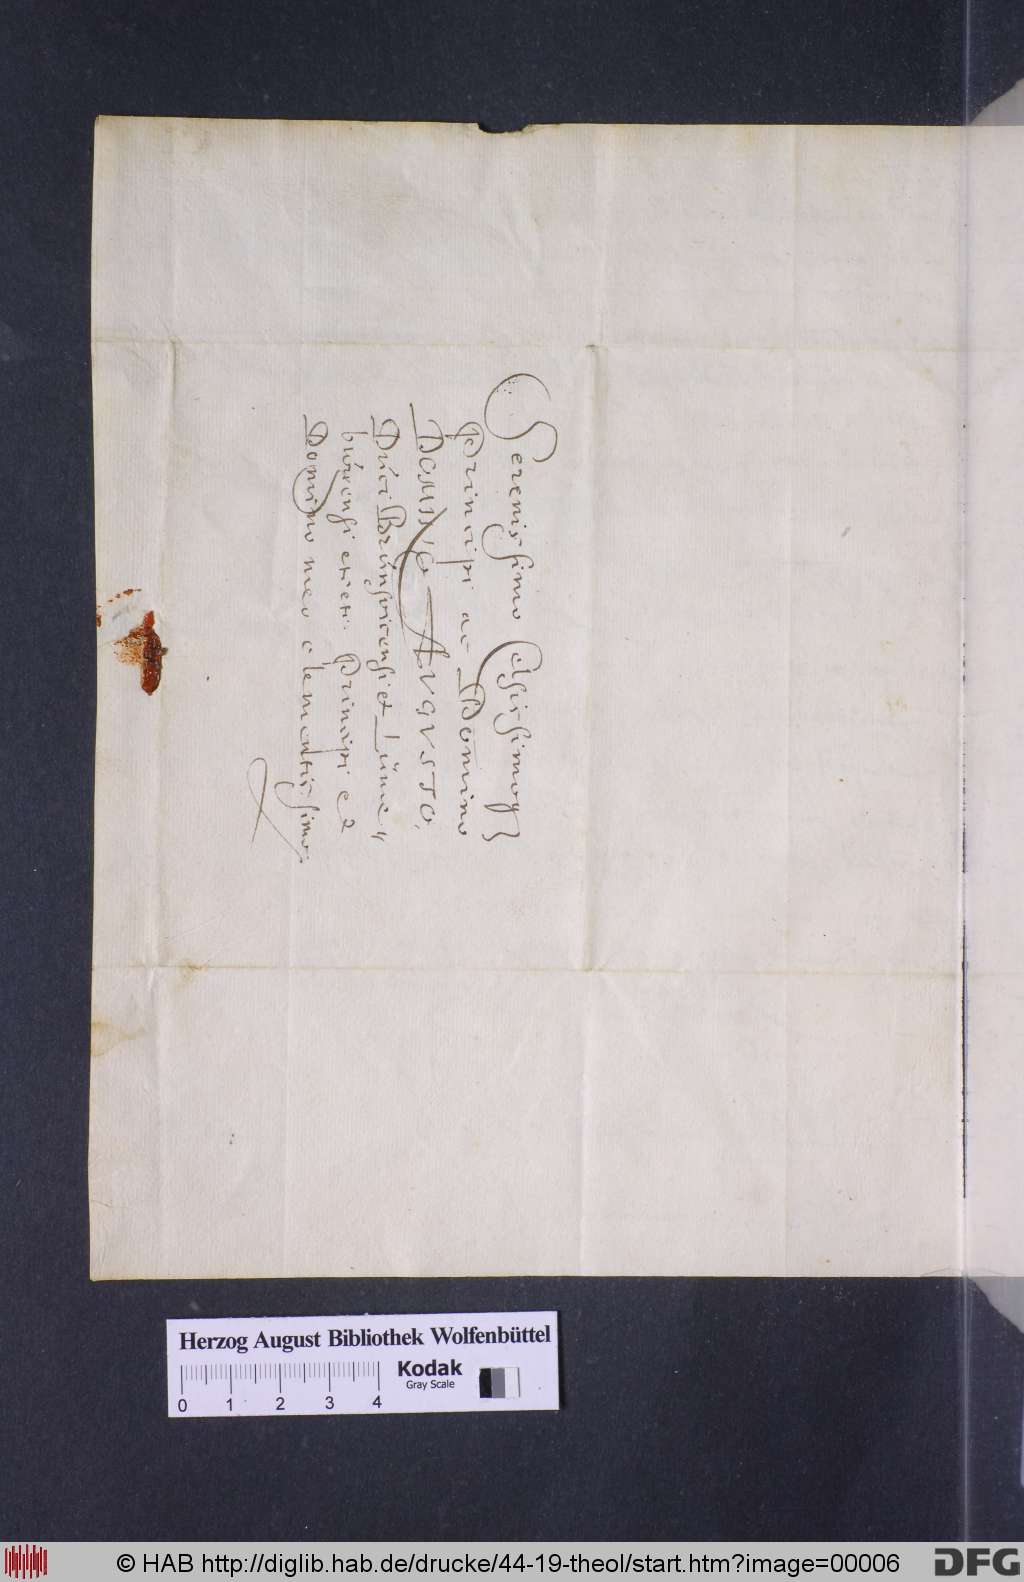 Serenissimo Celsissimoq3
Principi ac Domino
DOMINO AVGVSTO,
Duci Brunsvicensi et Lüne„
burgensi etc etc. Principi et
Domino meo clementissimo.
Herzog August Bibliothek Wolfenbüttel
Kodak
Gray Scale
0 1 2 3 4
© HAB http://diglib.hab.de/drucke/44-19-theol/start.htm?image=00006
DFG